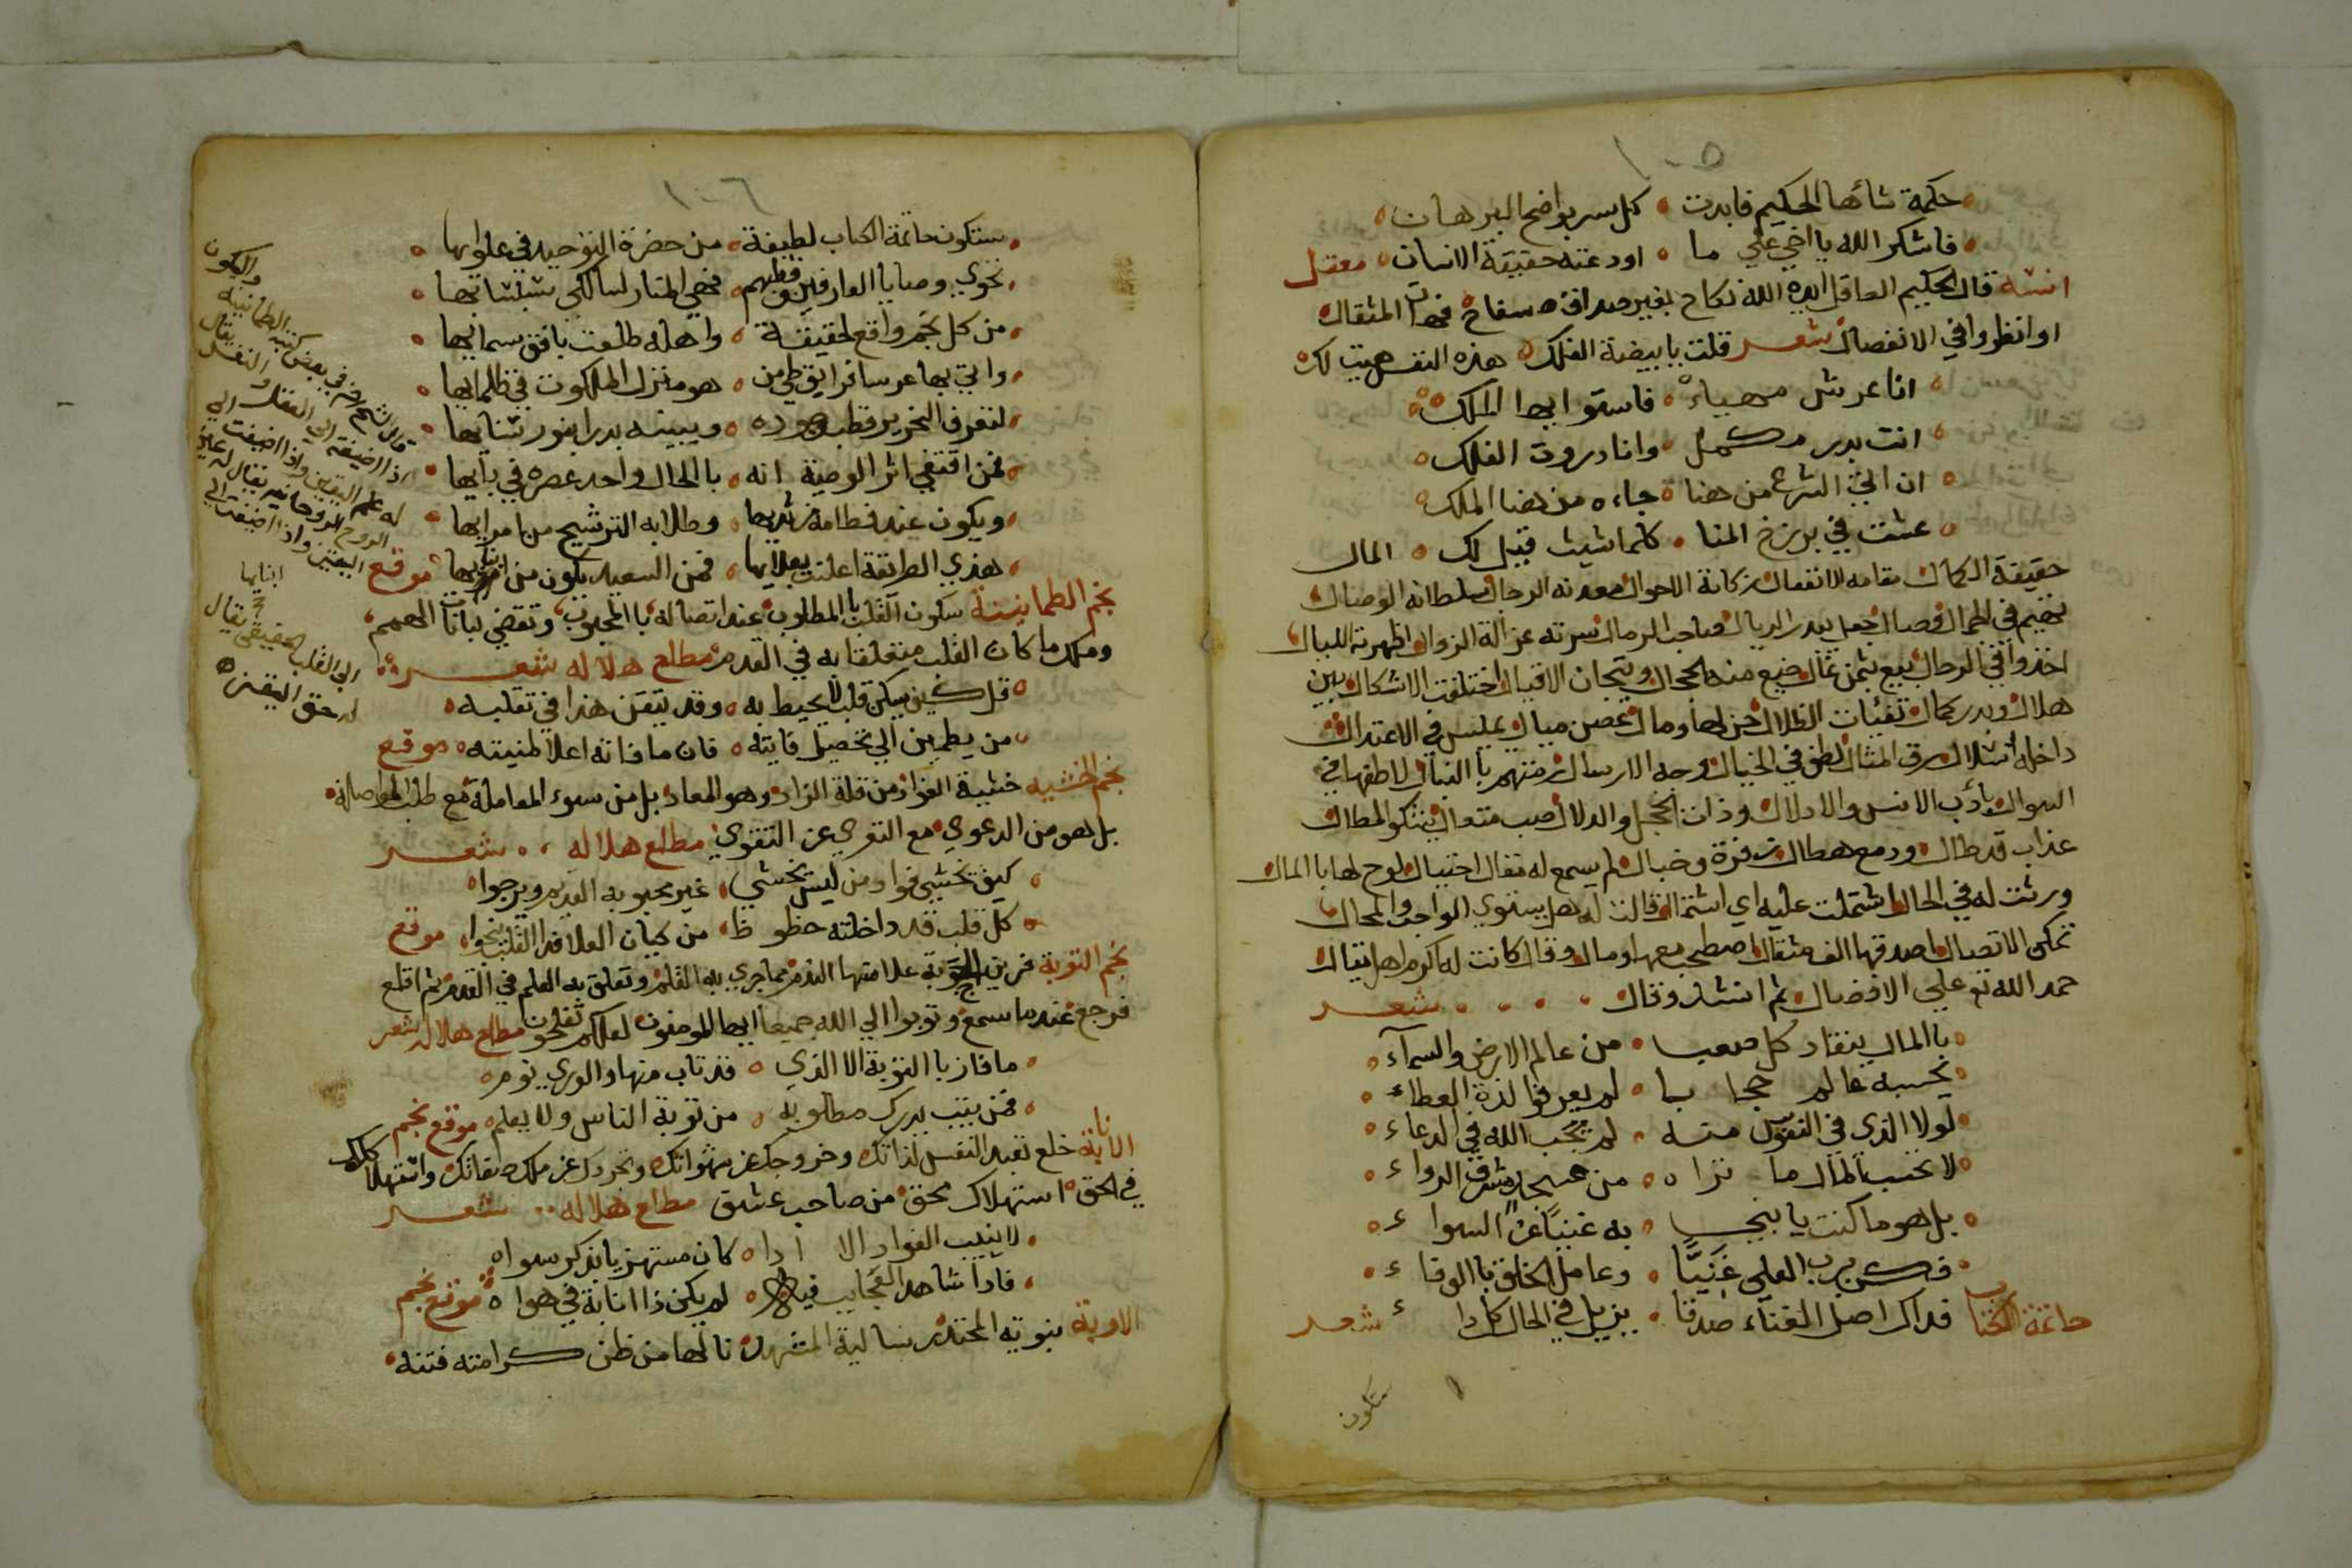 ١٠٥
حكمة شاءها الحكيم فابدت • كل سر بواضح البرهان
فاشكر الله يا اخي علي ما • اودعته حقيقة الانسان معقل
انسه قال الحكيم العاقل ايده الله نكاح بغير صداق سفاح فهات المثقال
او انظروا في الانفصال شعر قلت يا بيضة الفلك هذه النفس هيت لك
انا عرش مهياء • فاستوا ايها الملك
انت بدر مكمل • وانا دروت الفلك
ان اتي الشرع من هنا • جاءه من هنا الملك
عشت في برزخ المنا • كلما شيت قيل لك • المال
حقيقة الكمال مقامه الانفعال زكانة الاحوال معدنه الرجال سلطانه الوصال
اخذوا في الرحال بيع بثمن غال ضيع منه الحجال وتيجان الاقيال اختلفت الاشكال بين
هلال وبدر كمال تفيئات الظلال حن لها ومال غصن ميال يميس في الاعتدال
السوال يادب الانس والادلال وذات الخجل والدلال صب متوال يشكو المطال
عذاب قد طال ودمع هطال زفرة وخبال لم يسمع له مقال احتيال لوح لها بالمال
ورثت له في الحال اشتملت عليه اي اشتمال قالت له هل يستوي الواجد والمحال
تمكن الاتصال اصدقها الف مثقال اصطحب معها ومال وقال كانت له اكرم اهل يقال
حمد الله تع علي الافضال ثم انشد وقال شعر
با المال ينقاد كل صعب • من عالم الارض والسماء
يحسبه عالم حجابا • لم يعرفوا لذة العطاء
لولا الذي في النفوس منه • لم يجب الله في الدعاء
لا تحسب المال ما تراه • من عسجد مشرق الرواء
بل هو ما كنت يا بني • به غنيا عن السواء
فكن برب العلي غنيا • وعامل الخلق با الوفاء
خاتمة الكتاب فداك اصل الفناء صدقا • يزيل في الحال كل داء شعر
ستكون
١٠٦
ستكون خاتمة الكتاب لطيفة • من حضرة التوحيد في علوايها
تحوي وصايا العارفين وقطبهم • فهي المنار لسالكي سيسائها
من كل نجم واقع لحقيقة • واهله طلعت بافق سمائها
واتي بها عرسا فرايق طي من • هو منزل الملكوت في ظلمايها
لتعرف النحرير قطب وجوده • ويبينه بدرا بنور ثنايها
فمن اقتفي اثر الوصية انه • با الحال واحد عصره في بايها
ويكون عند فطامه من ثديها • وطلابه الترشيح من امرايها
هذي الطريقة اعلنت بعلايها • فمن السعيد يكون من ابنايها موقع
نجم الطمانينة سكون القلب با المطلوب عند اتصاله با المحبوب وتقضي لبانات الهمم
وملك ما كان القلب متعلقا به في القدم مطلع هلاله شعر
قل كيف يسكن قلب لا يحيط به • وقد تيقن هذا في تقلبه
من يطمين الي تحصيل فايته • فان ما فاته اعلا لمنيته موقع
نجم الخشيه خشية الفواد من قلة الزاد وهو المعاد بل من سوء المعاملة مع طلب المواصلة
بل هو من الدعوي مع التعري عن التقوي مطلع هلاله شعر
كيف يخشي فواد من ليس يخشي • غير محبوبه القديم ويرجوا
كل قلب قد داخلته حظوظ • من كيان العلا فذا القلب ينجوا موقع
نجم التوبة علامتها الندم بما جري به القلم وتعلق به العلم في القدم ثم اقلع
فرجع عند ما سمع وتوبوا الي الله جميعا ايها المومنون لعلكم تفلحون مطلع هلاله شعر
ما فاز با التوبة الا الذي • قد تاب منها والوري نوم
فمن يتب يدرك مطلوبه • من توبة الناس ولا يعلم موقع نجم
الانابة خلع تعبد النفس لذاتك وخروجك عن شهواتك وتجردك عن ملك صفاتك واستهلاك كلك
في الحق استهلاك محق من صاحب عشق مطلع هلاله شعر
لا ينيب الفواد الا اذا • كان مستهزيا بذكر سواه
فاذا شاهد العجايب فيه • لم يكن ذا انابة في هواه موقع نجم
الاوبة بنوته المحتد رسالية المشهد نالها من ظن كرامته فتنه
قال الشيخ رضه في بعض كتبه الطمانينة والسكون
اذا اضيفة الي العقل والنفس يقال
له علم اليقين واذا اضيفت الي
الروح الروحانيه يقال له عين
اليقين واذا اضيفت الي
ابنايها
الي القلب الحقيقي يقال
له حق اليقين